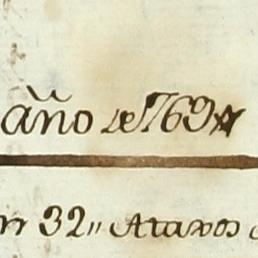 año de 1769
32,, Atavos